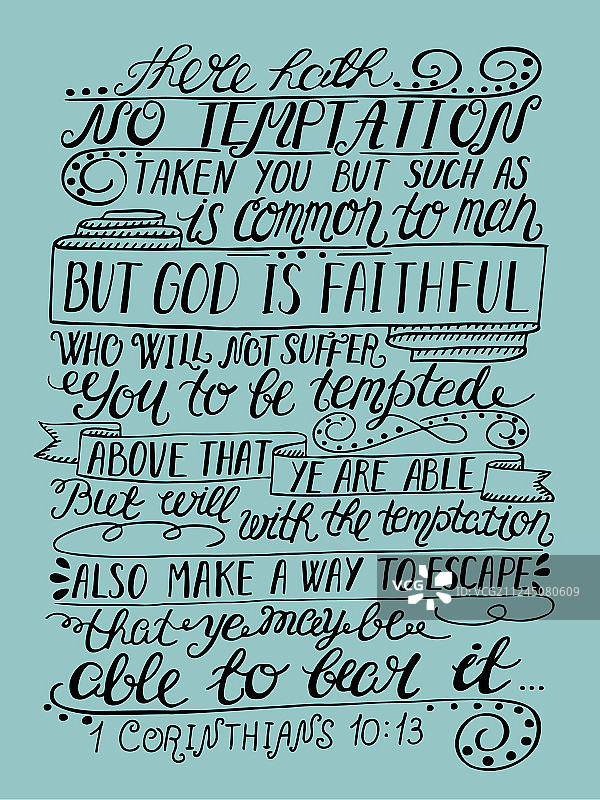 there hath
NO TEMPTATION
TAKEN YOU BUT SUCH AS
is common to man
BUT GOD IS FAITHFUL
WHO WILL NOT SUFFER
You to be tempted
ABOVE THAT
YE ARE ABLE
But will
with the temptation
ALSO MAKE A WAY TO ESCAPE
VCG
ID: VCG211245080609
that ye may be
able to bear it...
1 CORINTHIANS 10:13